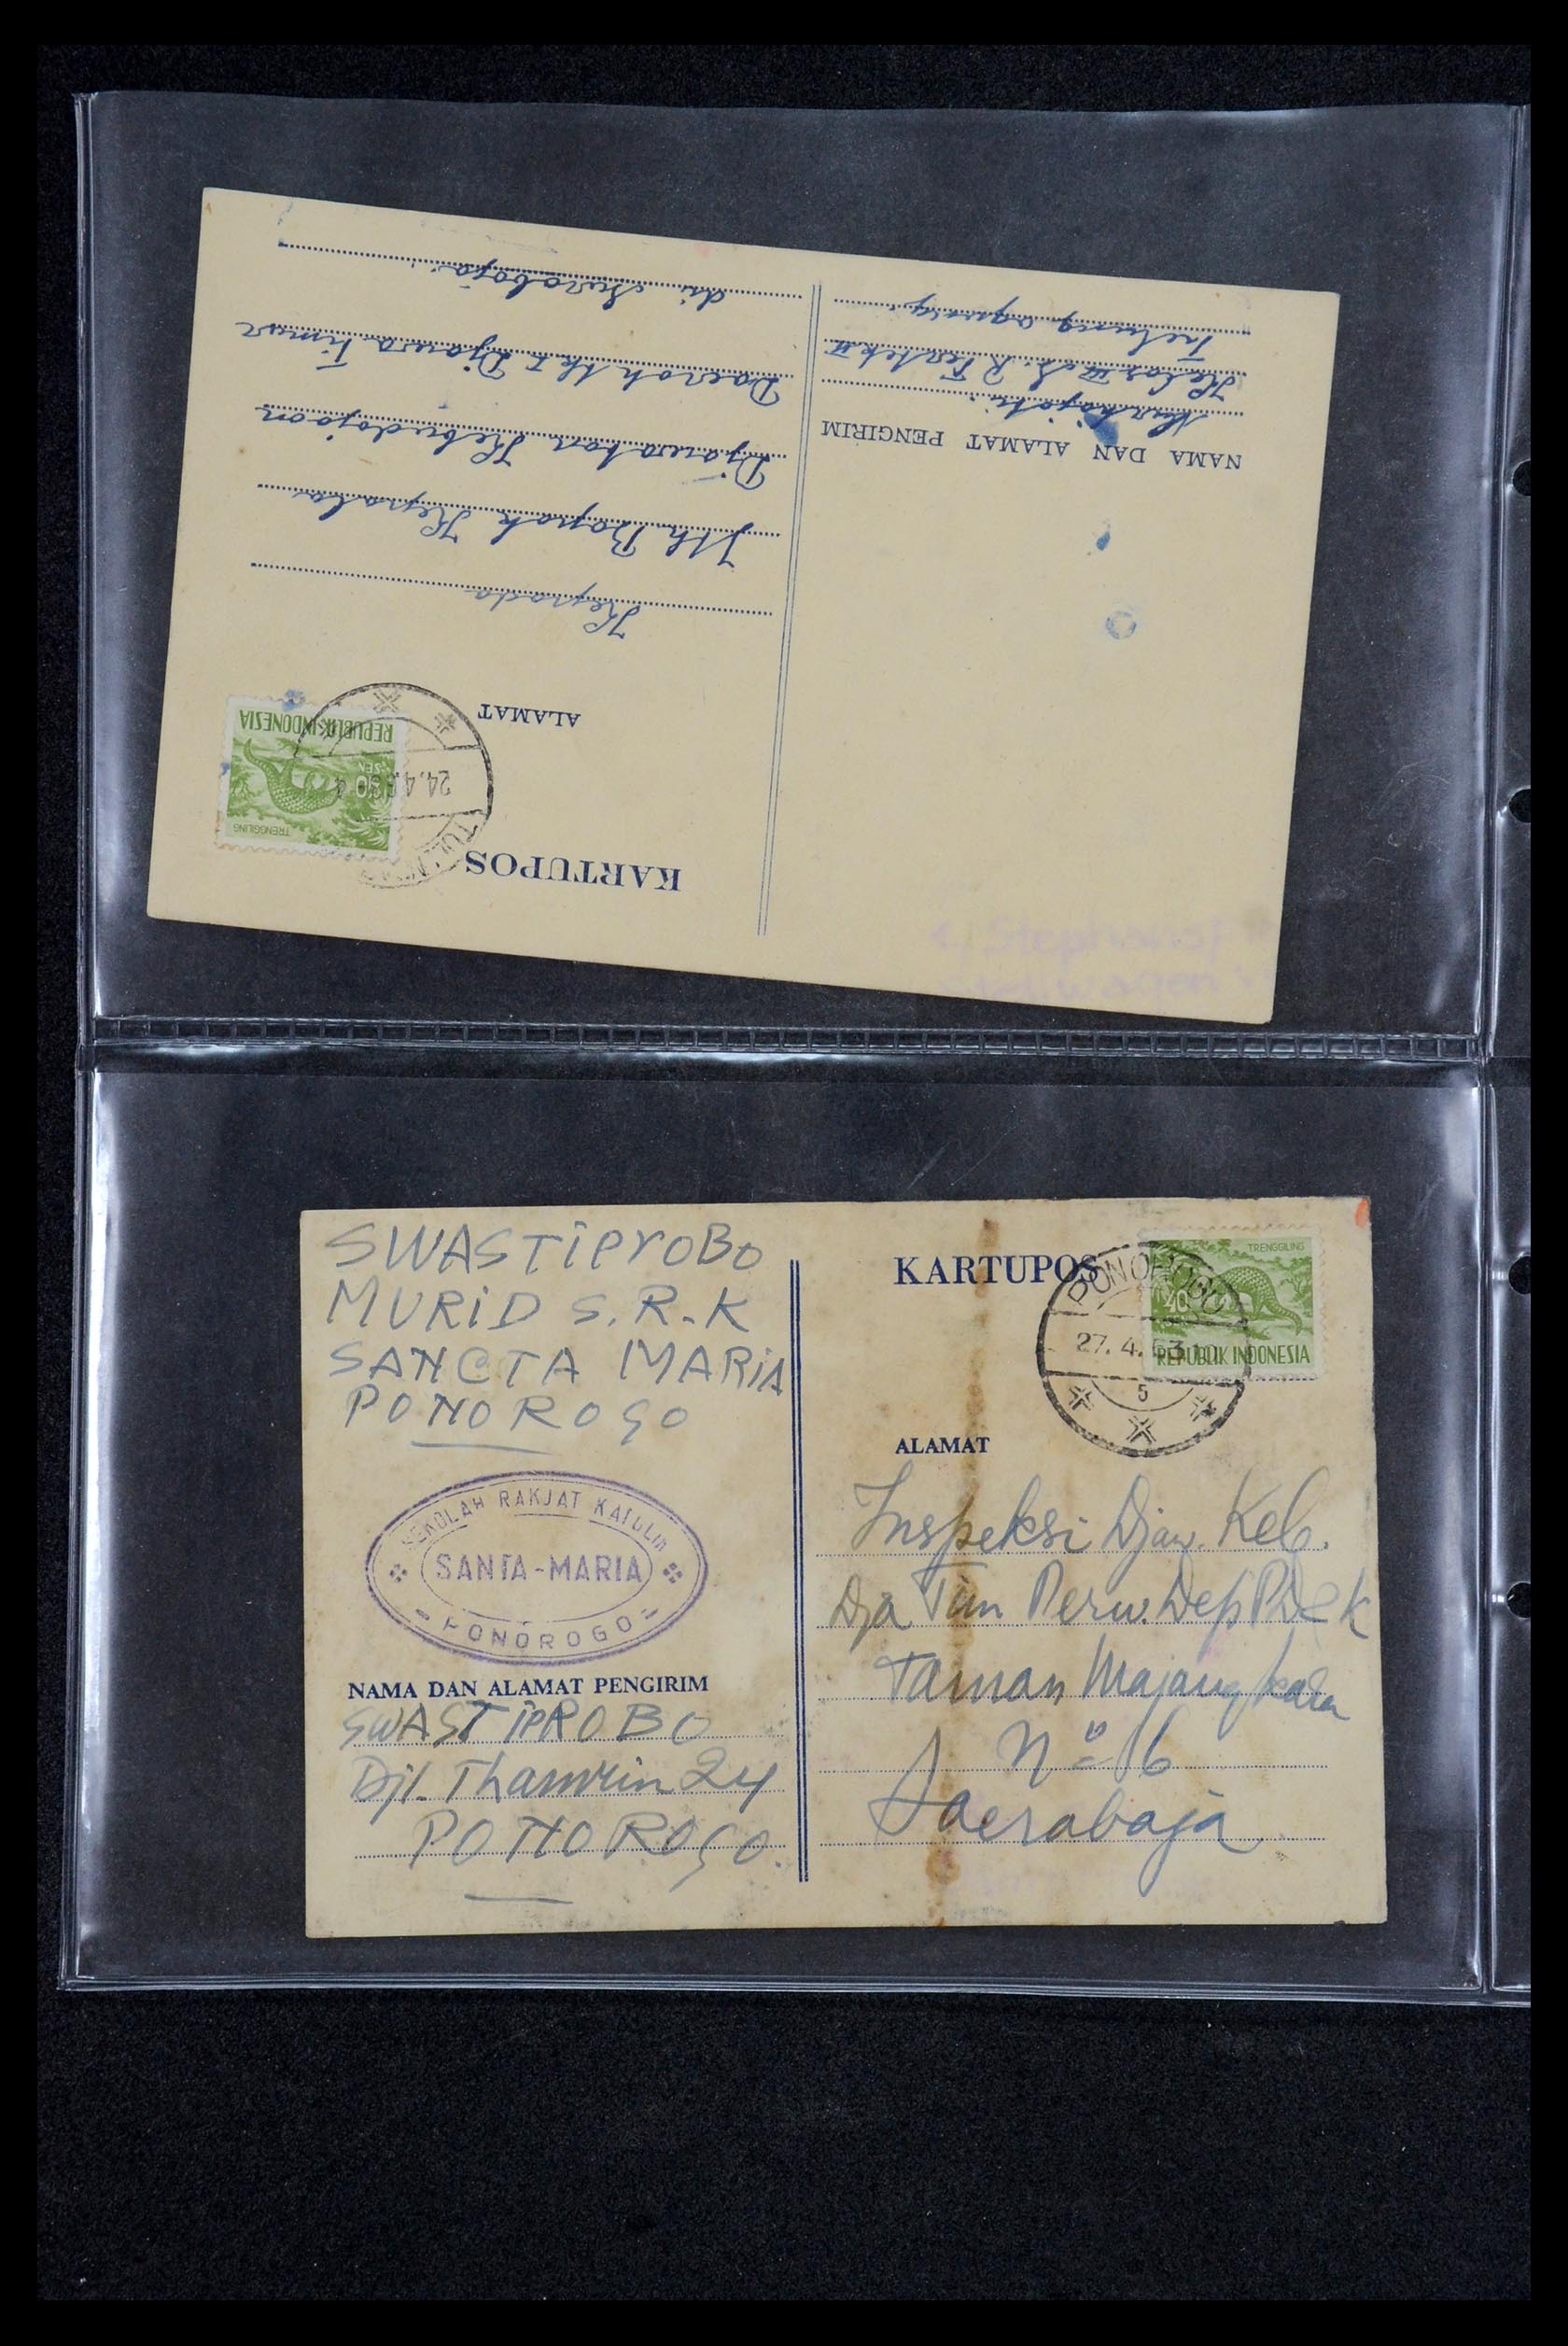 KARTUPOS
TRENGGILING
SEN
REPUBLIK INDONESIA
24.4.
ALAMAT
Kepada
Jth Bapak Kepala
Djawatan Kebudajaan
Daerah tk I Djawa Timur
di Surabaja
NAMA DAN ALAMAT PENGIRIM
Kelas III S.R
Stephanus
SWASTiPrOBO
MURiD S.R.K
SANCTA MARiA
PONOROGO
SEKOLAH RAKJAT KATOLIK
SANTA-MARIA
PONOROGO
NAMA DAN ALAMAT PENGIRIM
SWASTiPROBO
Djl. Thamrin 24
PONOROGO.
KARTUPOS
TRENGGILING
40
REPUBLIK INDONESIA
PONOROGO
27.4.63
5
ALAMAT
Inspeksi Djaw. Keb.
Dja Tim Perw. Dep PD & K
Taman Majangkara
No 6
Soerabaja